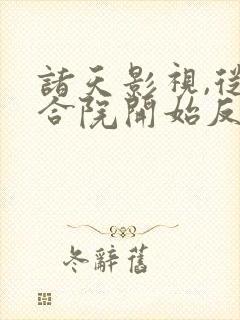 諸天影視,從
合院開始反
冬辭舊